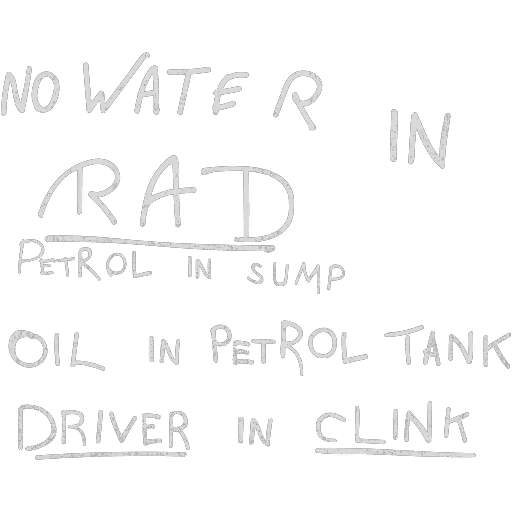 NO WATER IN
RAD
PETROL IN SUMP
OIL IN PETROL TANK
DRIVER IN CLINK